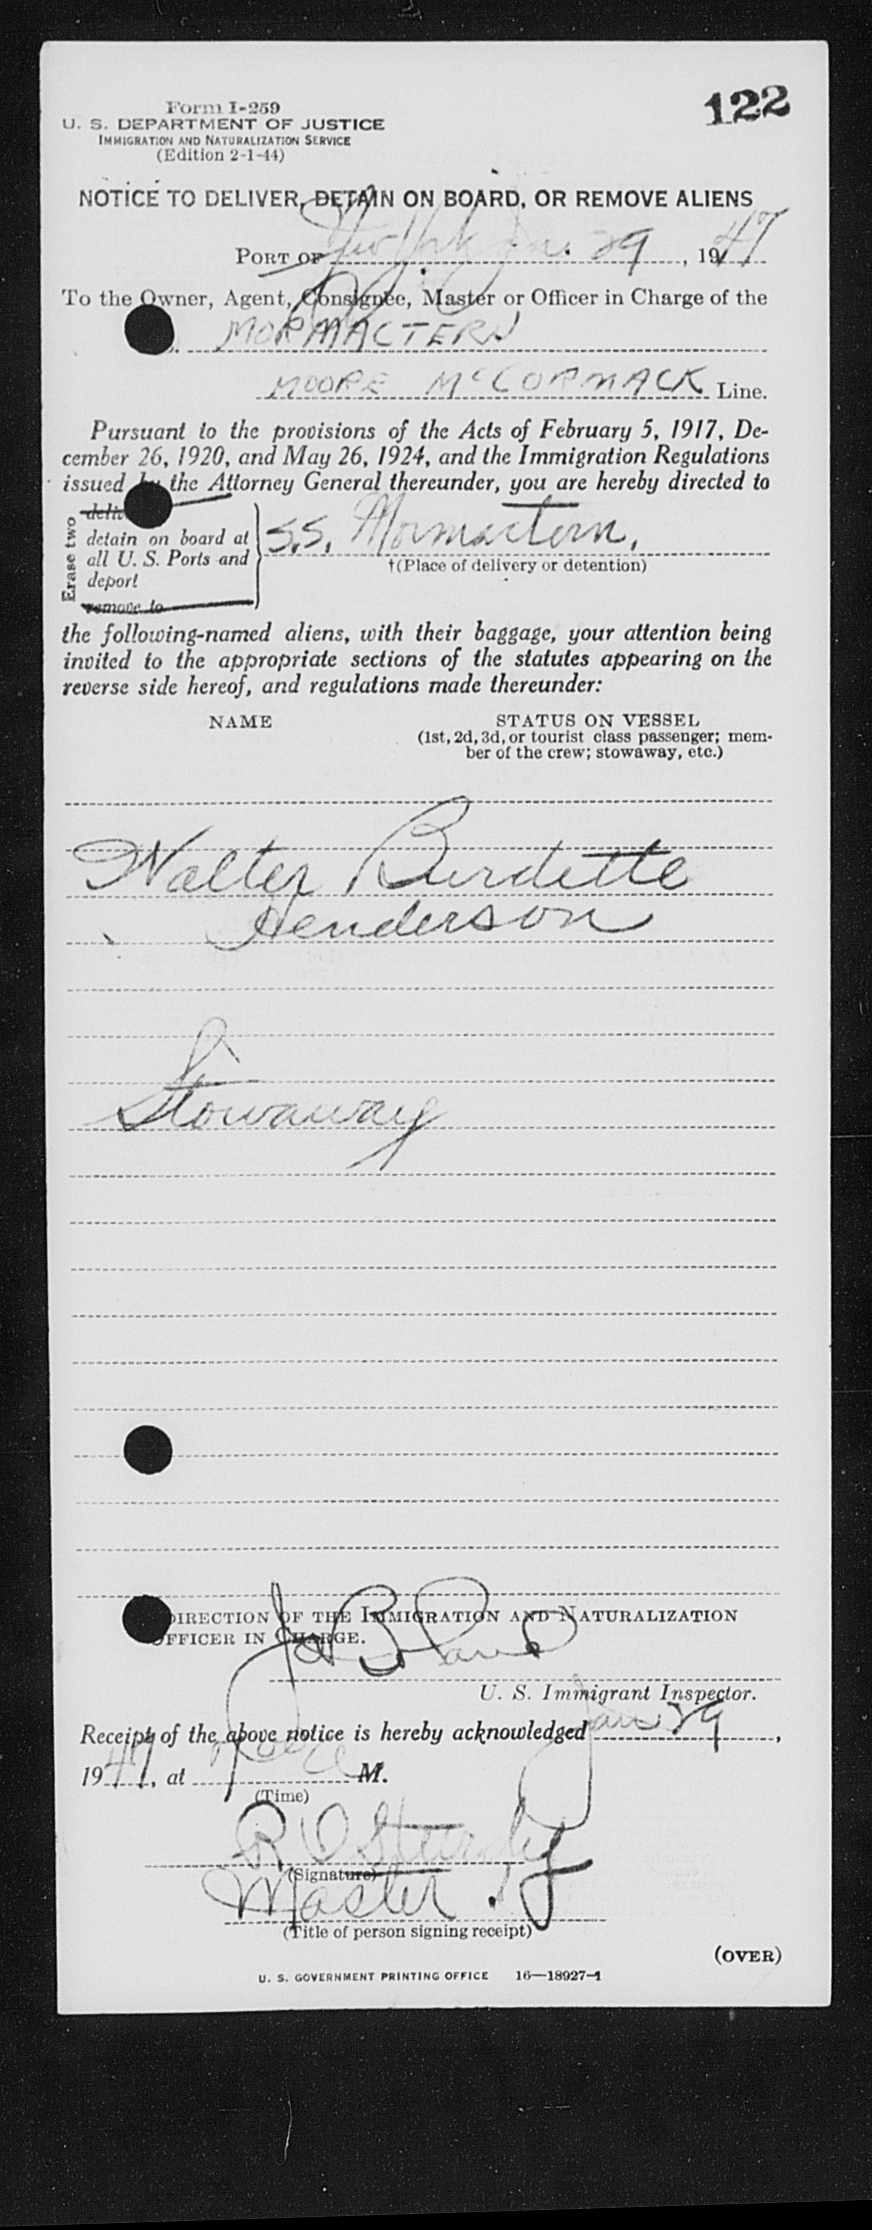 122
Form I-259
U. S. DEPARTMENT OF JUSTICE
IMMIGRATION AND NATURALIZATION SERVICE
(Edition 2-1-44)
NOTICE TO DELIVER, DETAIN ON BOARD, OR REMOVE ALIENS
PORT OF New York Jan. 29, 1947
To the Owner, Agent, Consignee, Master or Officer in Charge of the
MORMACTERN
MOORE McCORMACK Line.
Pursuant to the provisions of the Acts of February 5, 1917, De-
cember 26, 1920, and May 26, 1924, and the Immigration Regulations
issued by the Attorney General thereunder, you are hereby directed to
Erase two
detain on board at
all U. S. Ports and
deport
remove to
S.S. Mormactern.
†(Place of delivery or detention)
the following-named aliens, with their baggage, your attention being
invited to the appropriate sections of the statutes appearing on the
reverse side hereof, and regulations made thereunder:
NAME STATUS ON VESSEL
(1st, 2d, 3d, or tourist class passenger; mem-
ber of the crew; stowaway, etc.)
Walter Burdette
Henderson
Stowaway
DIRECTION OF THE IMMIGRATION AND NATURALIZATION
OFFICER IN CHARGE.
U. S. Immigrant Inspector.
Receipt of the above notice is hereby acknowledged Jan 29,
1947, at M.
(Time)
(Signature)
Master
(Title of person signing receipt)
(OVER)
U. S. GOVERNMENT PRINTING OFFICE 16—18927-1